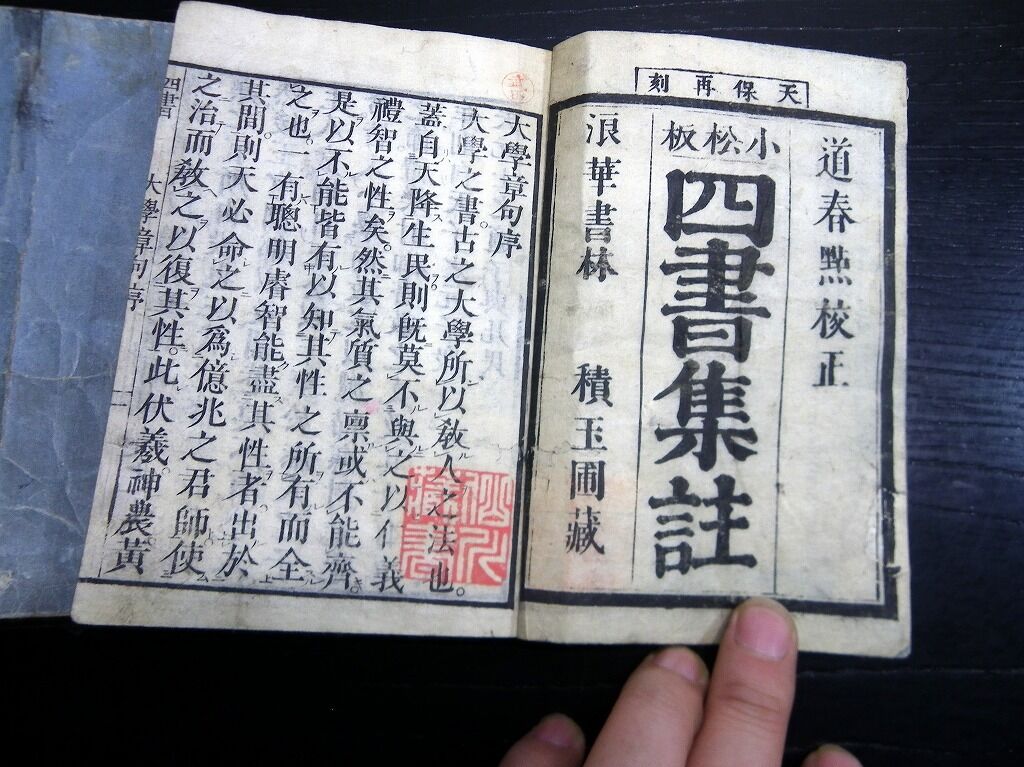 天保再刻
道春點校正
小松板
四書集註
浪華書林 積玉圃藏
大學章句序
大學之書。古之大學所以敎人之法也。
蓋自天降生民則旣莫不與之以仁義
禮智之性矣。然其氣質之稟或不能齊。
是以不能皆有以知其性之所有而全
之也。一有聰明睿智能盡其性者出於
其間。則天必命之以爲億兆之君師使
之治而敎之以復其性。此伏羲。神農黃
四書 大學章句序 一